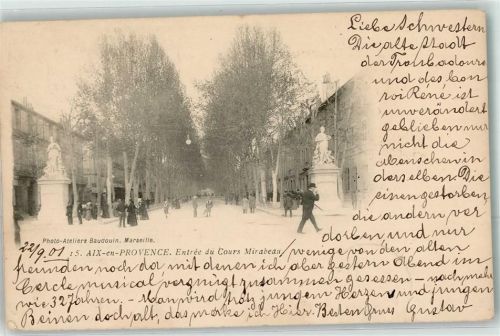 Liebe Schwestern
Die alte Stadt
der Troubadours
und des bon
roi René ist
unverändert
geblieben nur
nicht die
Menschen in
derselben. Die
einen gestorben
die andern ver
dorben und nur
wenige von den alten
Freunden noch da mit denen ich aber gestern Abend im
Cercle musical vergnügt zusammen gesessen – nach mehr
wie 32 Jahren. – Man wird trotz jungem Herzen und jungen
Beinen doch alt, das merke ich hier. Besten Gruss Gustav
Photo-Ateliers Baudouin, Marseille.
22/9.01.
15. AIX-en-PROVENCE. Entrée du Cours Mirabeau